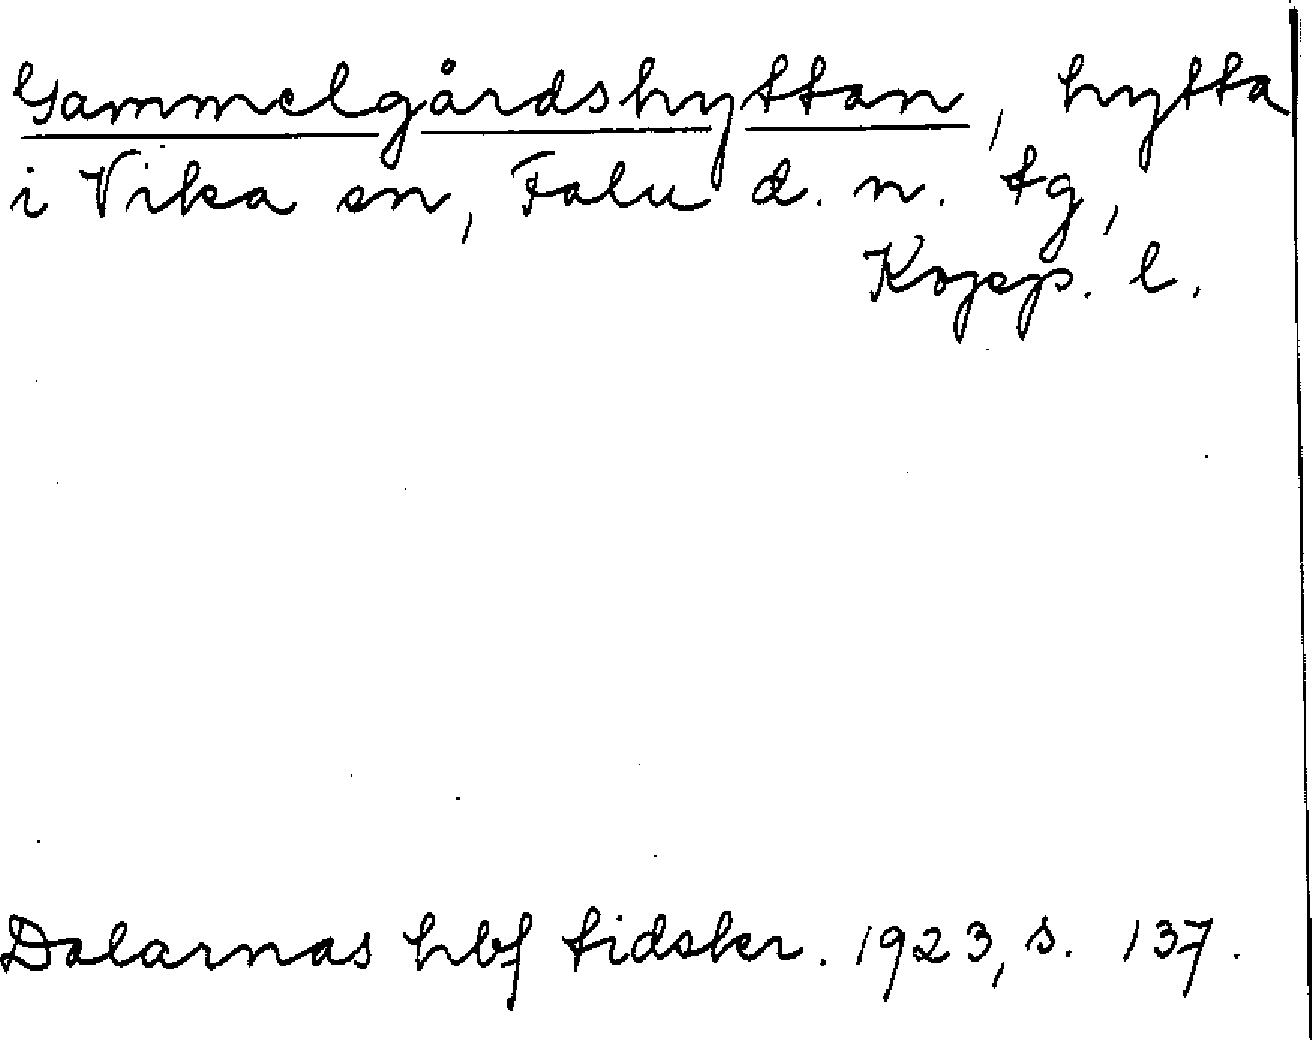 Gammelgårdshyttan, hytta
i Vika sn, Falu d. n. tg,
Kopp. l.
Dalarnas hbf tidskr. 1923, s. 137.